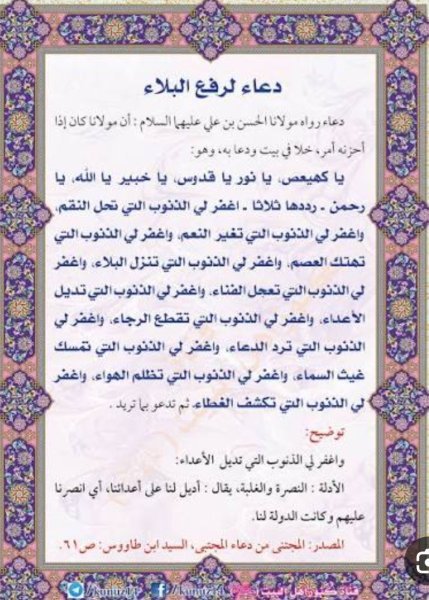 دعاء لرفع البلاء
دعاء رواه مولانا الحسن بن علي عليهما السلام : أن مولانا كان إذا
أحزنه أمر، خلا في بيت ودعا به، وهو:
يا كهيعص، يا نور يا قدوس، يا خبير يا الله، يا
رحمن ـ رددها ثلاثا ـ اغفر لي الذنوب التي تحل النقم،
واغفر لي الذنوب التي تغير النعم، واغفر لي الذنوب التي
تهتك العصم، واغفر لي الذنوب التي تنزل البلاء، واغفر
لي الذنوب التي تعجل الفناء، واغفر لي الذنوب التي تديل
الأعداء، واغفر لي الذنوب التي تقطع الرجاء، واغفر لي
الذنوب التي ترد الدعاء، واغفر لي الذنوب التي تمسك
غيث السماء، واغفر لي الذنوب التي تظلم الهواء، واغفر
لي الذنوب التي تكشف الغطاء. ثم تدعو بما تريد .
توضيح:
واغفر لي الذنوب التي تديل الأعداء:
الأدلة : النصرة والغلبة، يقال : أديل لنا على أعدائنا، أي انصرنا
عليهم وكانت الدولة لنا.
المصدر: المجتنى من دعاء المجتبى، السيد ابن طاووس: ص٦١.
قناة كنوز أهل البيت
/kunuz14
/kunuz14